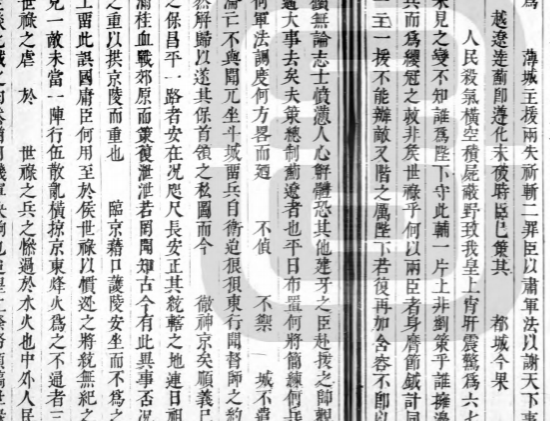 薄城主援兩失祈斬二罪臣以肅軍法以謝天下事
越遼達薊即遵化未破時臣已策其　都城今果
人民殺氣橫空積屍蔽野致我皇上宵旰震驚爲六七
未見之變不知誰爲陛下守此輔一片土非劉策乎誰擁濠
兵而爲纓冠之救非矦世祿乎何以兩臣者身膺節鉞計同
一主一援不能辦敵又階之厲陛下若復再加舍容不即以
瀆無論志士憤懣人心解體恐其他建牙之臣赴援之帥觀
過大事去矣夫策總制薊遼者也平日布置何將簡練何兵
何軍法調度何方畧而廼　不偵　不禦　城不
淪亡不與聞兀坐斗城畱兵自衛迨狠狠東行聞督師之約
然解歸以遂其保首領之私圖而今　徼神京矣順義已
之保昌平一路者安在况咫尺長安正其統轄之地連日祖
滿桂血戰郊原而策復泄泄若罔聞知古今有此異事否况
之重以拱京陵而重也　臨京藉口護陵安坐而不爲之
上畱此誤國庸臣何用至於矦世祿以僨逃之將統無紀之
見一敵未當一陣行伍散亂橫掠京東烽火爲之不通者三
世祿之虐　於　世祿之兵之慘過於水火也中外人民